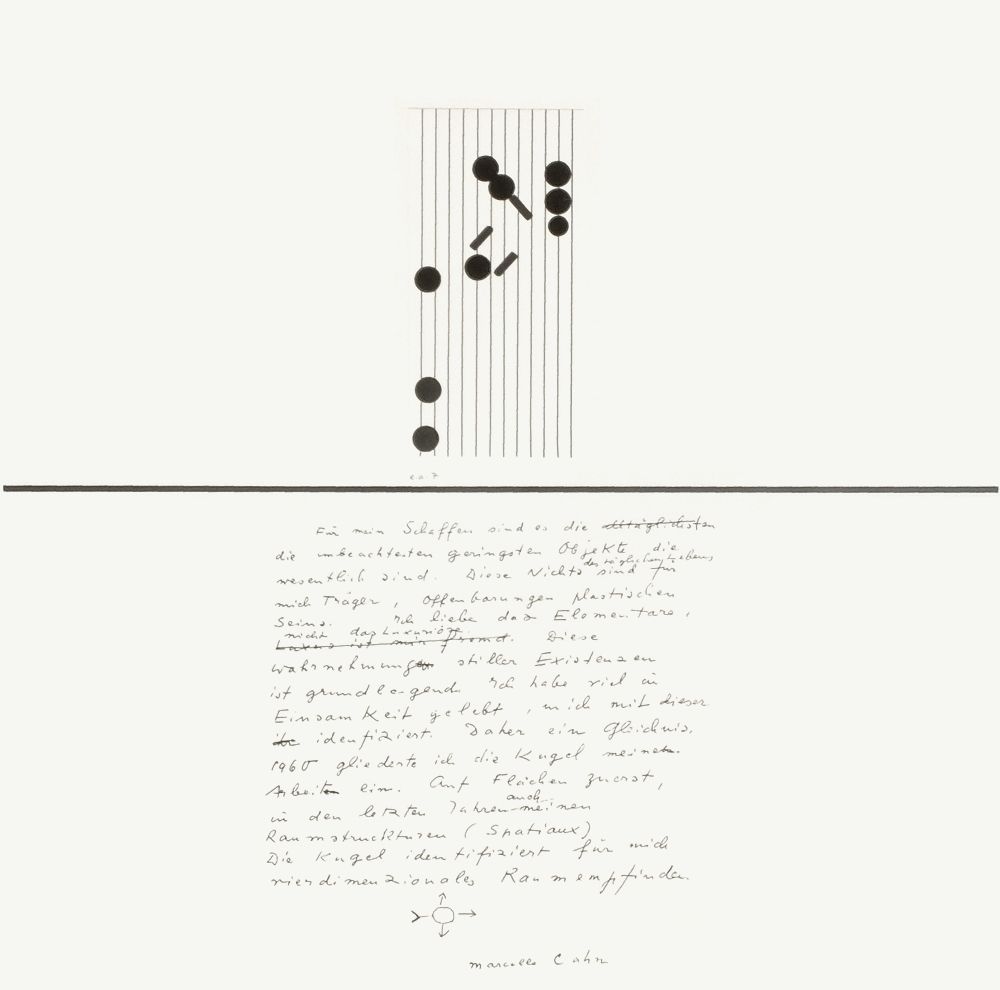 e.a. 7
Für mein Schaffen sind es die alltäglichsten
die unbeachtesten geringsten Objekte die
des täglichen Lebens
wesentlich sind. Diese Nichts sind für
mich Träger, Offenbarungen plastischen
Seins. Ich liebe das Elementare,
nicht das Luxuriöse.
Luxus ist mir fremd. Diese
Wahrnehmung stiller Existenzen
ist grundlegend. Ich habe viel in
Einsamkeit gelebt, mich mit dieser
idenfiziert. Daher ein Gleichnis.
1960 gliederte ich die Kugel meiner
Arbeit ein. Auf Flächen zuerst,
auch
in den letzten Jahren meinen
Raumstruckturen (Spatiaux)
Die Kugel identifiziert für mich
vierdimenzionales Raumempfinden.
marcelle Cahn